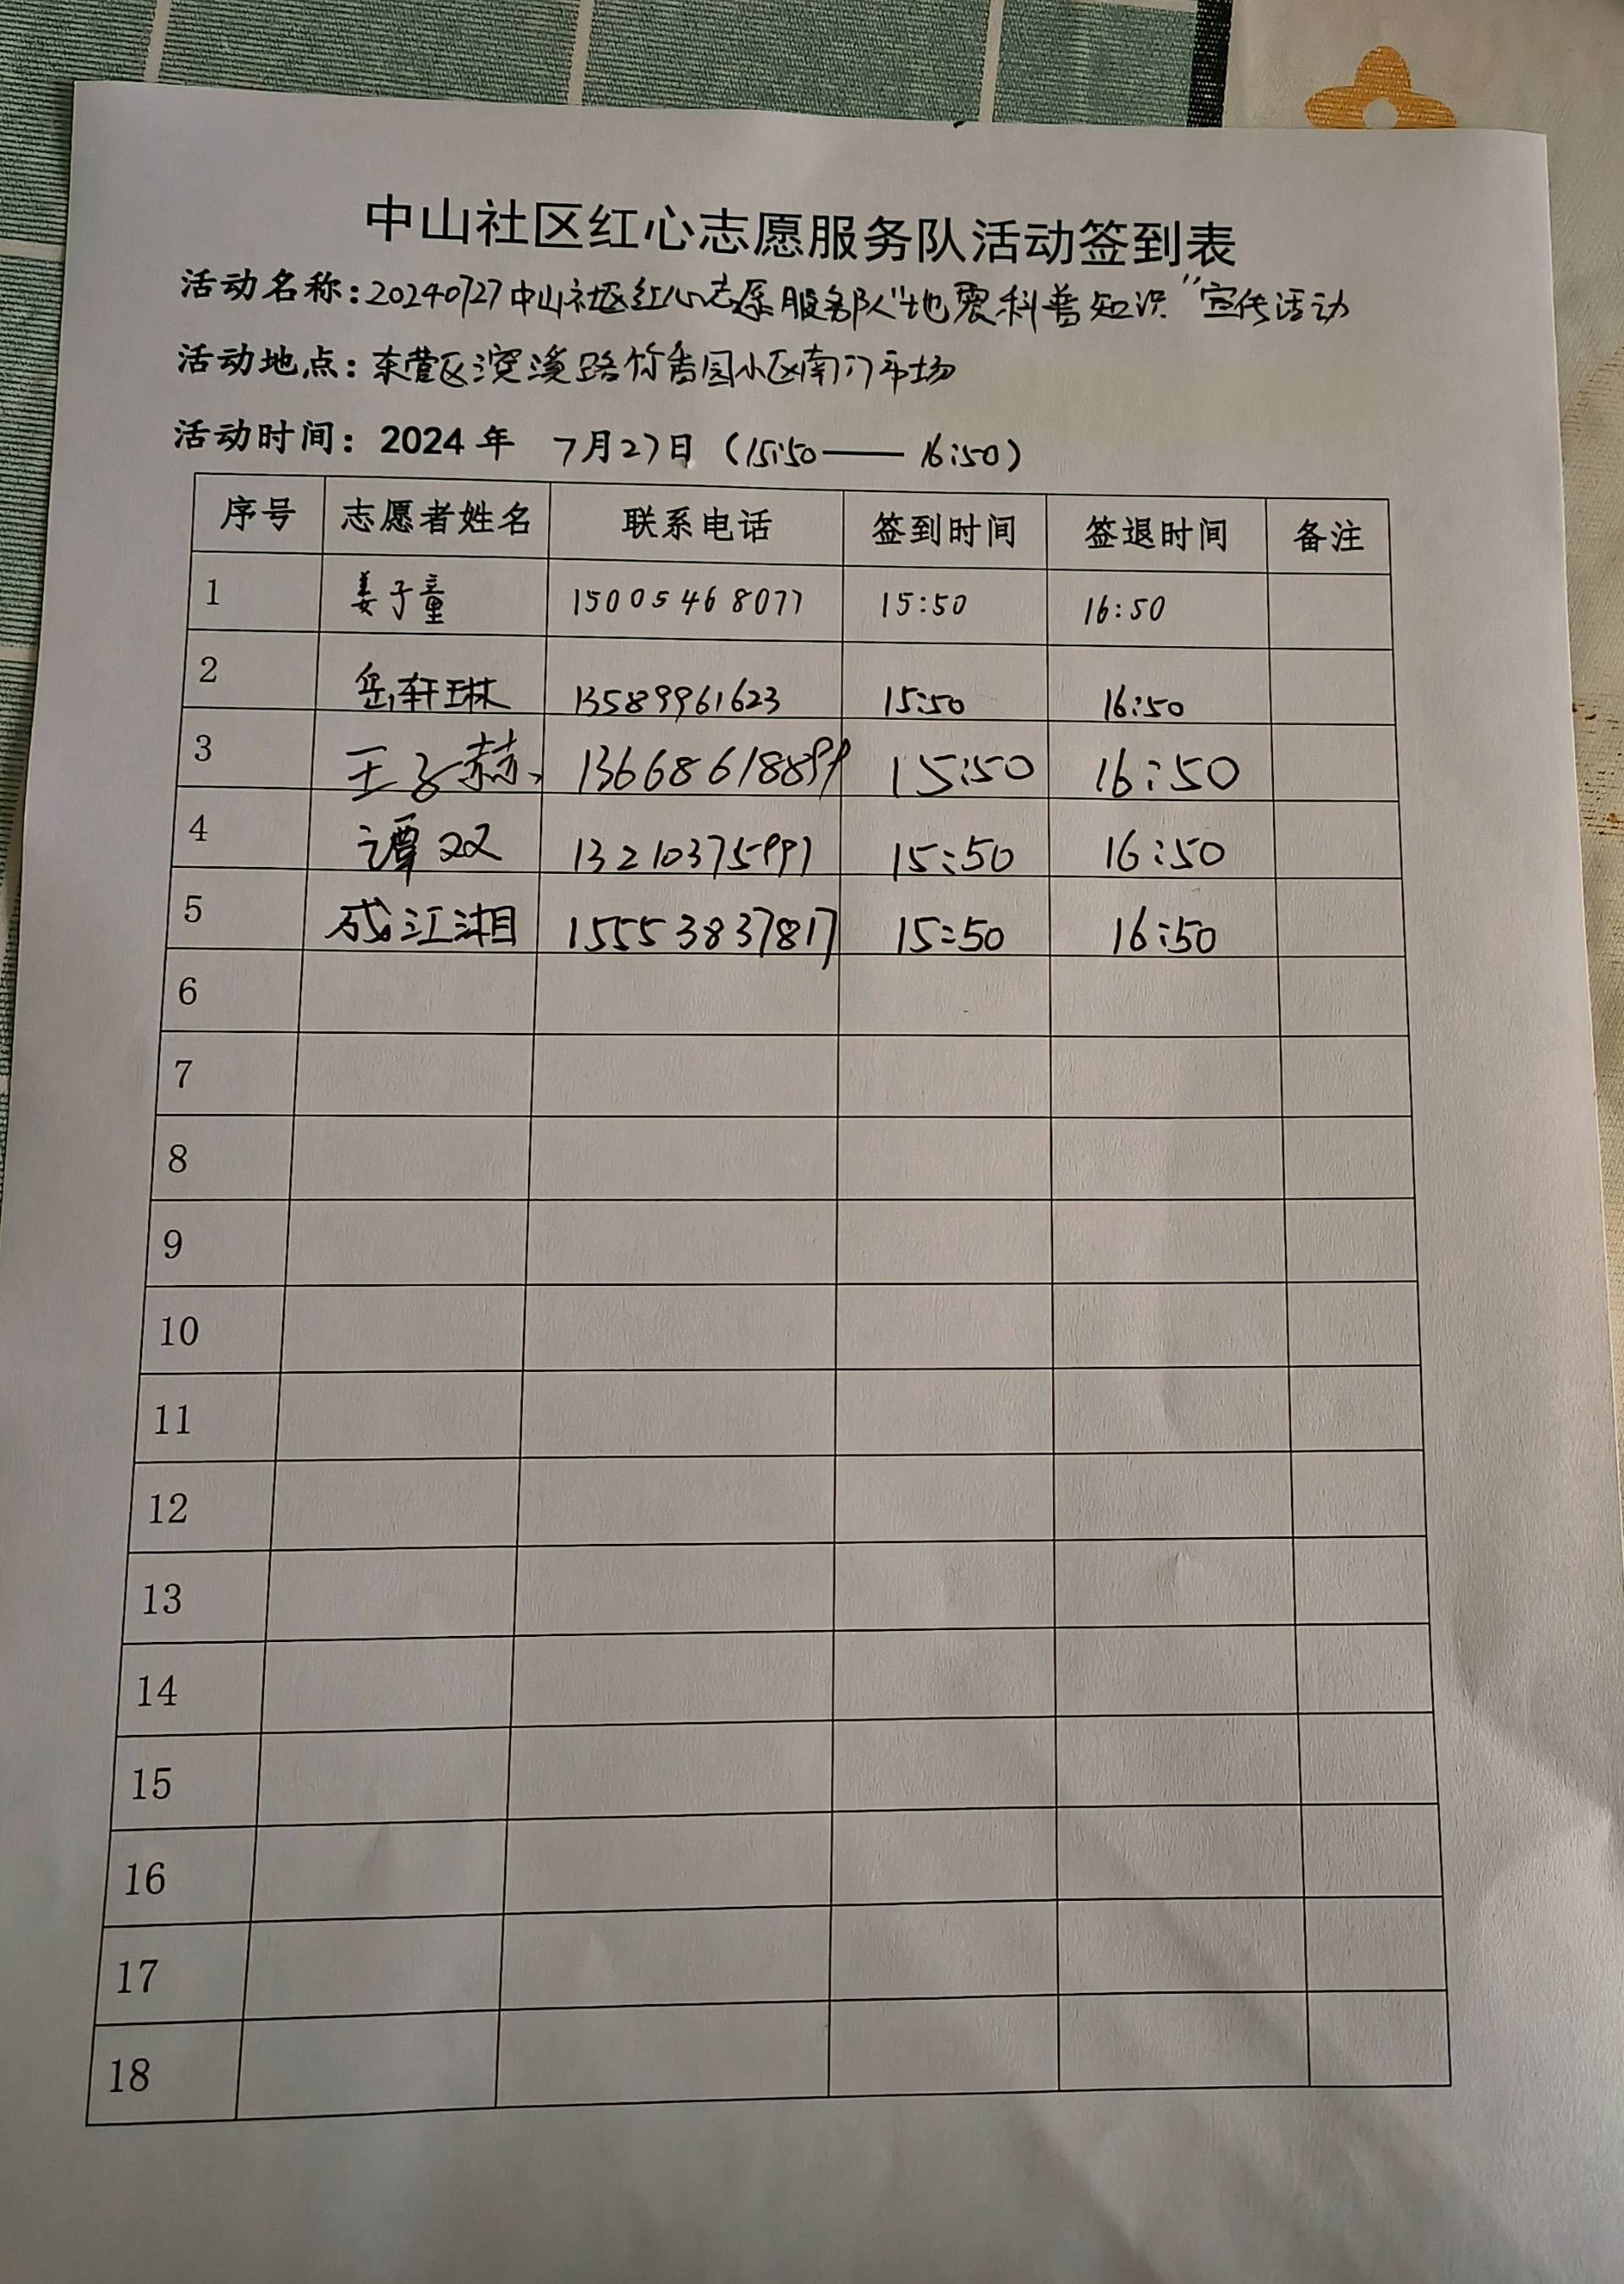 中山社区红心志愿服务队活动签到表
活动名称：20240727中山社区红心志愿服务队“地震科普知识”宣传活动
活动地点：东营区浣溪路竹香园小区南门市场
活动时间：2024年 7月27日（15:50——16:50）
序号 志愿者姓名 联系电话 签到时间 签退时间 备注
1 姜子童 15005468077 15:50 16:50
2 岳轩琳 13589961623 15:50 16:50
3 王子赫 15:50 16:50
4 谭双 13210375991 15:50 16:50
5 成江湘 15553837817 15:50 16:50
6
7
8
9
10
11
12
13
14
15
16
17
18